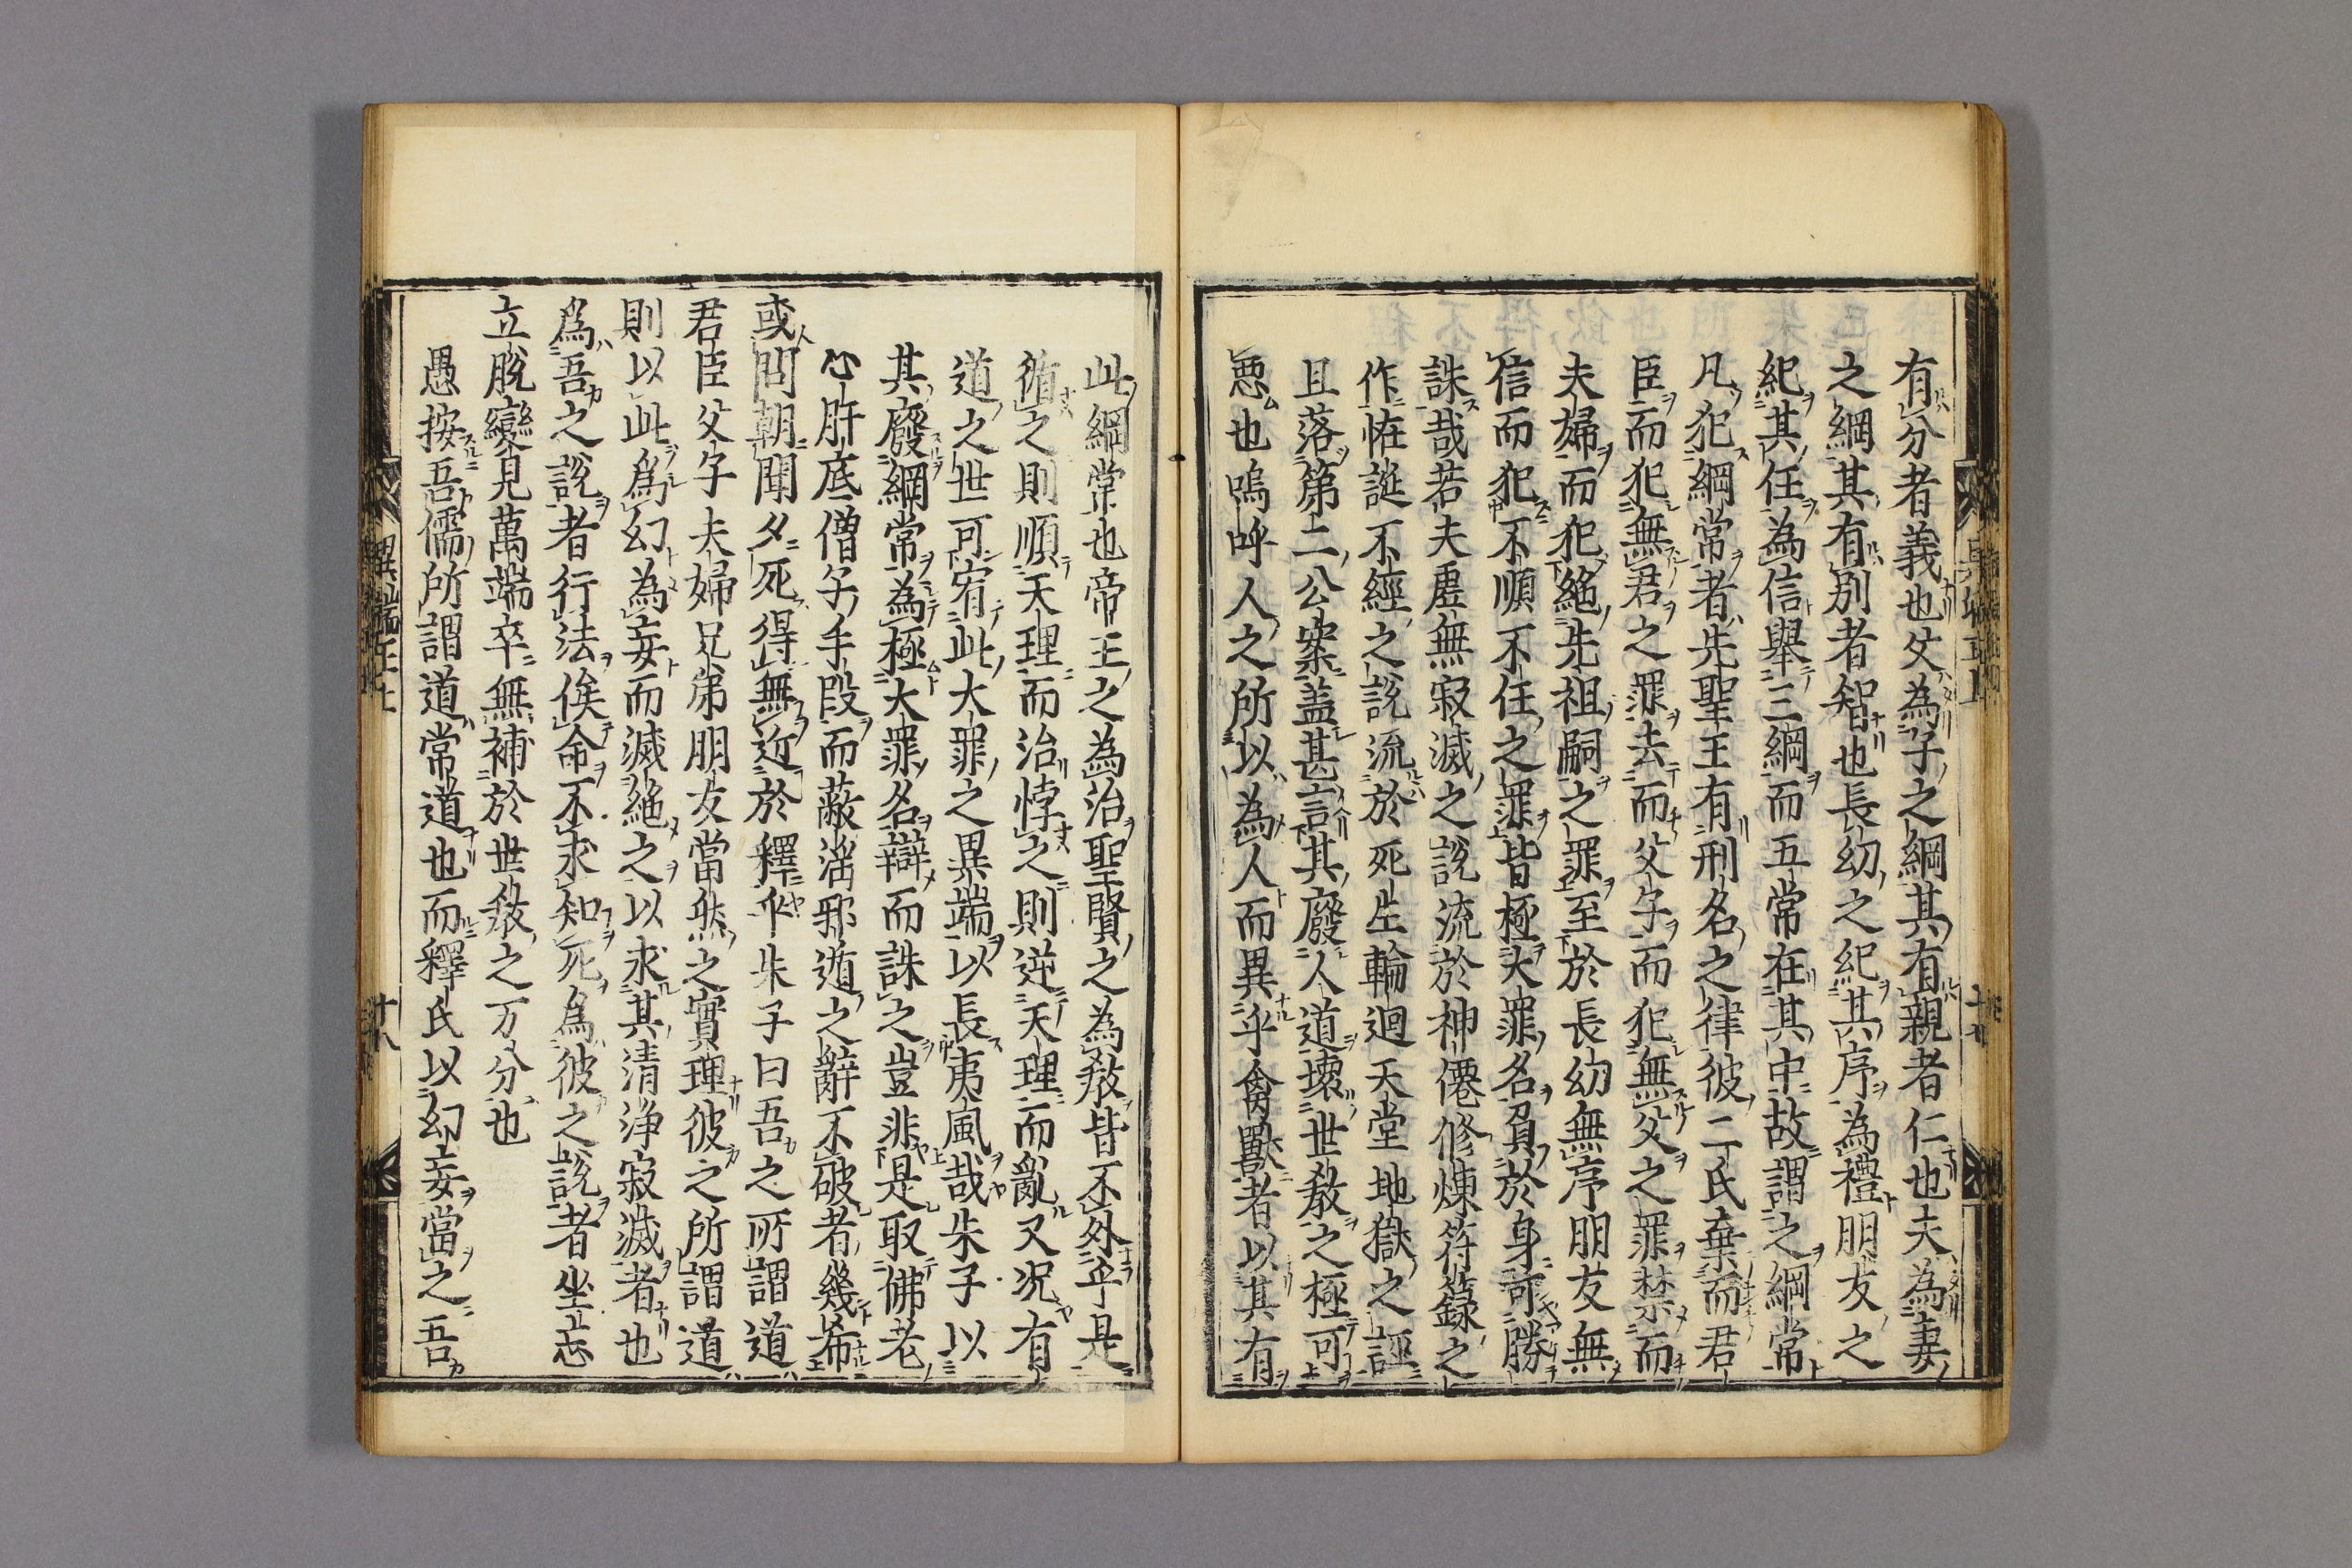 有分者義也父為子之綱其有親者仁也夫為妻
之綱其有別者智也長幼之紀其序為禮朋友之
紀其任為信舉三綱而五常在其中故謂之綱常
凡犯綱常者先聖王有刑名之律彼二氏棄而君
臣而犯無君之罪去而父子而犯無父之罪禁而
夫婦而犯絶先祖嗣之罪至於長幼無序朋友無
信而犯不順不任之罪皆極大罪名負於身可勝
誅哉若夫虛無寂滅之說流於神僊修煉符籙之
作恠誕不經之說流於死生輪迴天堂地獄之誣
且落第二公案盖甚言其廢人道壞世敎之極可
惡也嗚呼人之所以為人而異乎禽獸者以其有
此綱常也帝王之為治聖賢之為敎皆不外乎是
循之則順天理而治悖之則逆天理而亂又况有
道之世可宥此大罪之異端以長夷風哉朱子以
其廢綱常為極大罪名辯而誅之豈非是取佛老
心肝底僧子手段而蔽淫邪遁之辭不破者幾希
或問朝聞夕死得無近於釋乎朱子曰吾之所謂道
君臣父子夫婦兄弟朋友當然之實理彼之所謂道
則以此為幻為妄而滅絶之以求其清浄寂滅者也
爲吾之說者行法俟命不求知死爲彼之說者坐忘
立脫變見萬端卒無補於世敎之万分也
愚按吾儒所謂道常道也而釋氏以幻妄當之吾
異端五上
十八